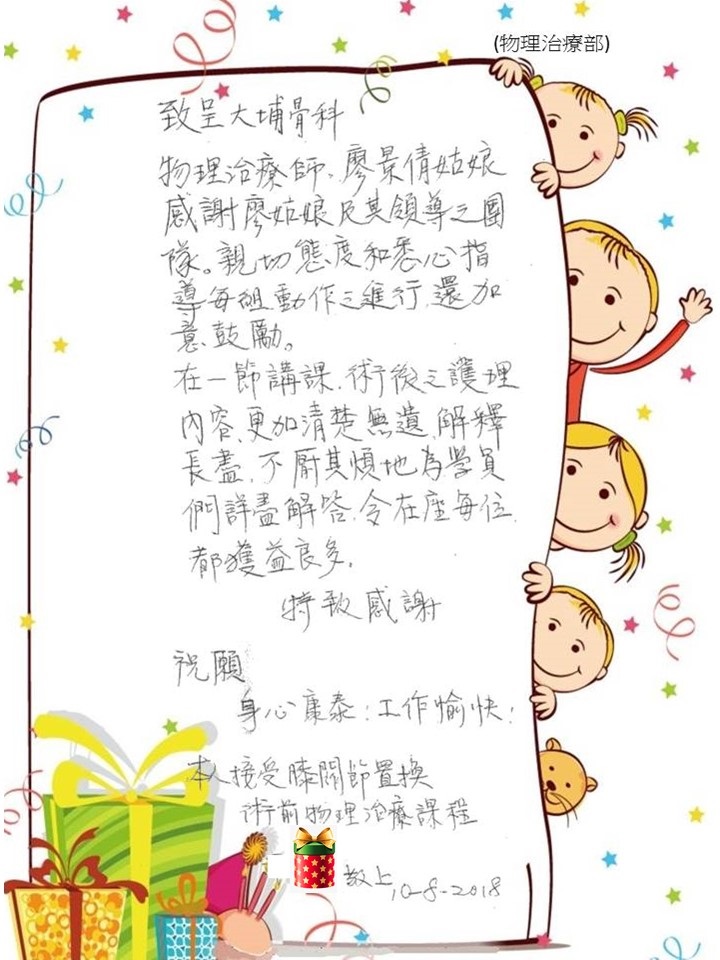 (物理治療部)
致呈大埔骨科
物理治療師、廖景倩姑娘
感謝廖姑娘及其領導之團
隊。親切態度和悉心指
導每組動作之進行,還加
意鼓勵。
在一節講課,術後之護理
內容,更加清楚無遺,解釋
長盡,不厭其煩地為學員
們詳盡解答,令在座每位,
都獲益良多,
特致感謝
祝願
身心康泰!工作愉快!
本人接受膝關節置換
術前物理治療課程
敬上,10-8-2018